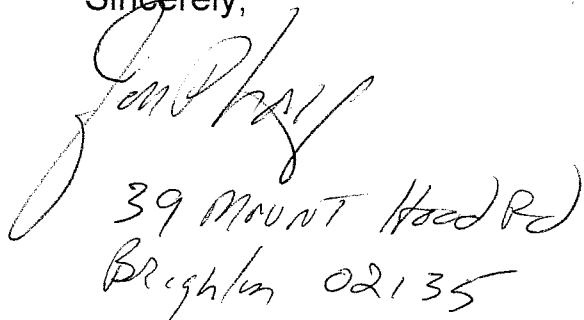 Sincerely,
39 Mount Hood Rd
Brighton 02135